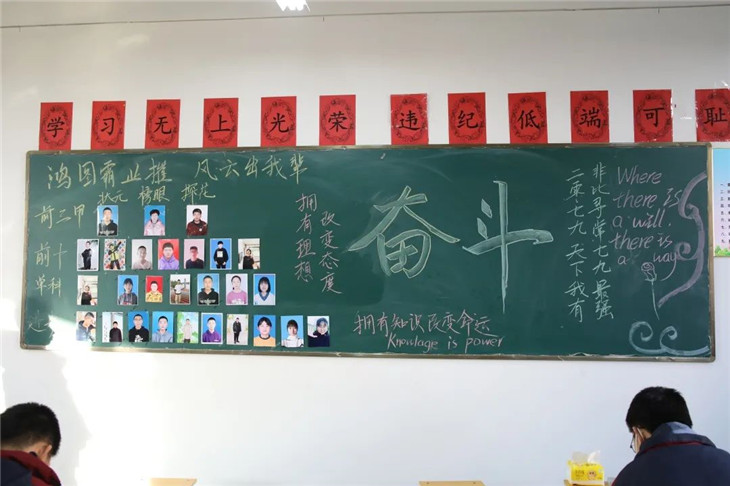 学习无上光荣违纪低端可耻
鸿图霸业 风云出我辈
状元 榜眼 探花
前三甲
前十
单科
进
拥有理想
改变态度
奋斗
拥有知识改变命运
Knowlage is power
非比寻常七九最强
二零七九天下我有
Where
there is
a will
there is
a way